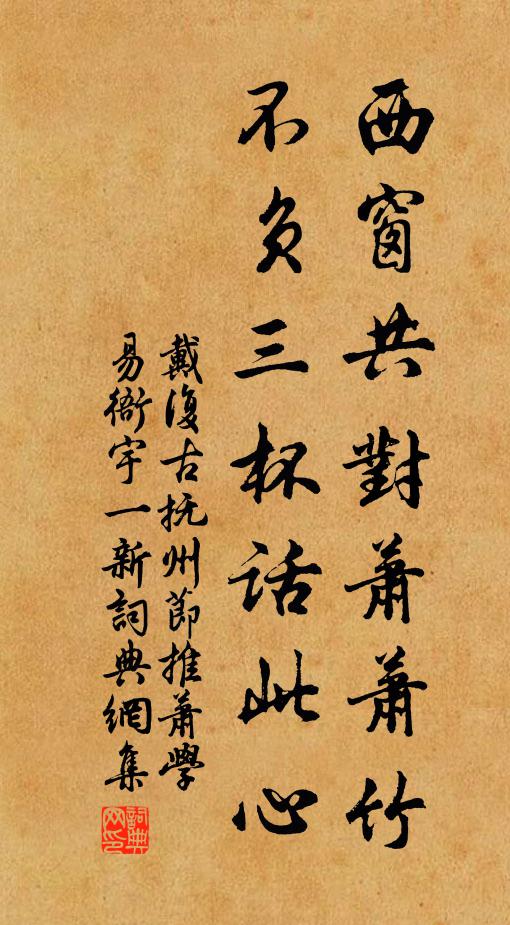 西窗共對蕭蕭竹
不負三杯話此心
戴復古抚州節推蕭學
易衙宇一新詞典網集
詞典
网印